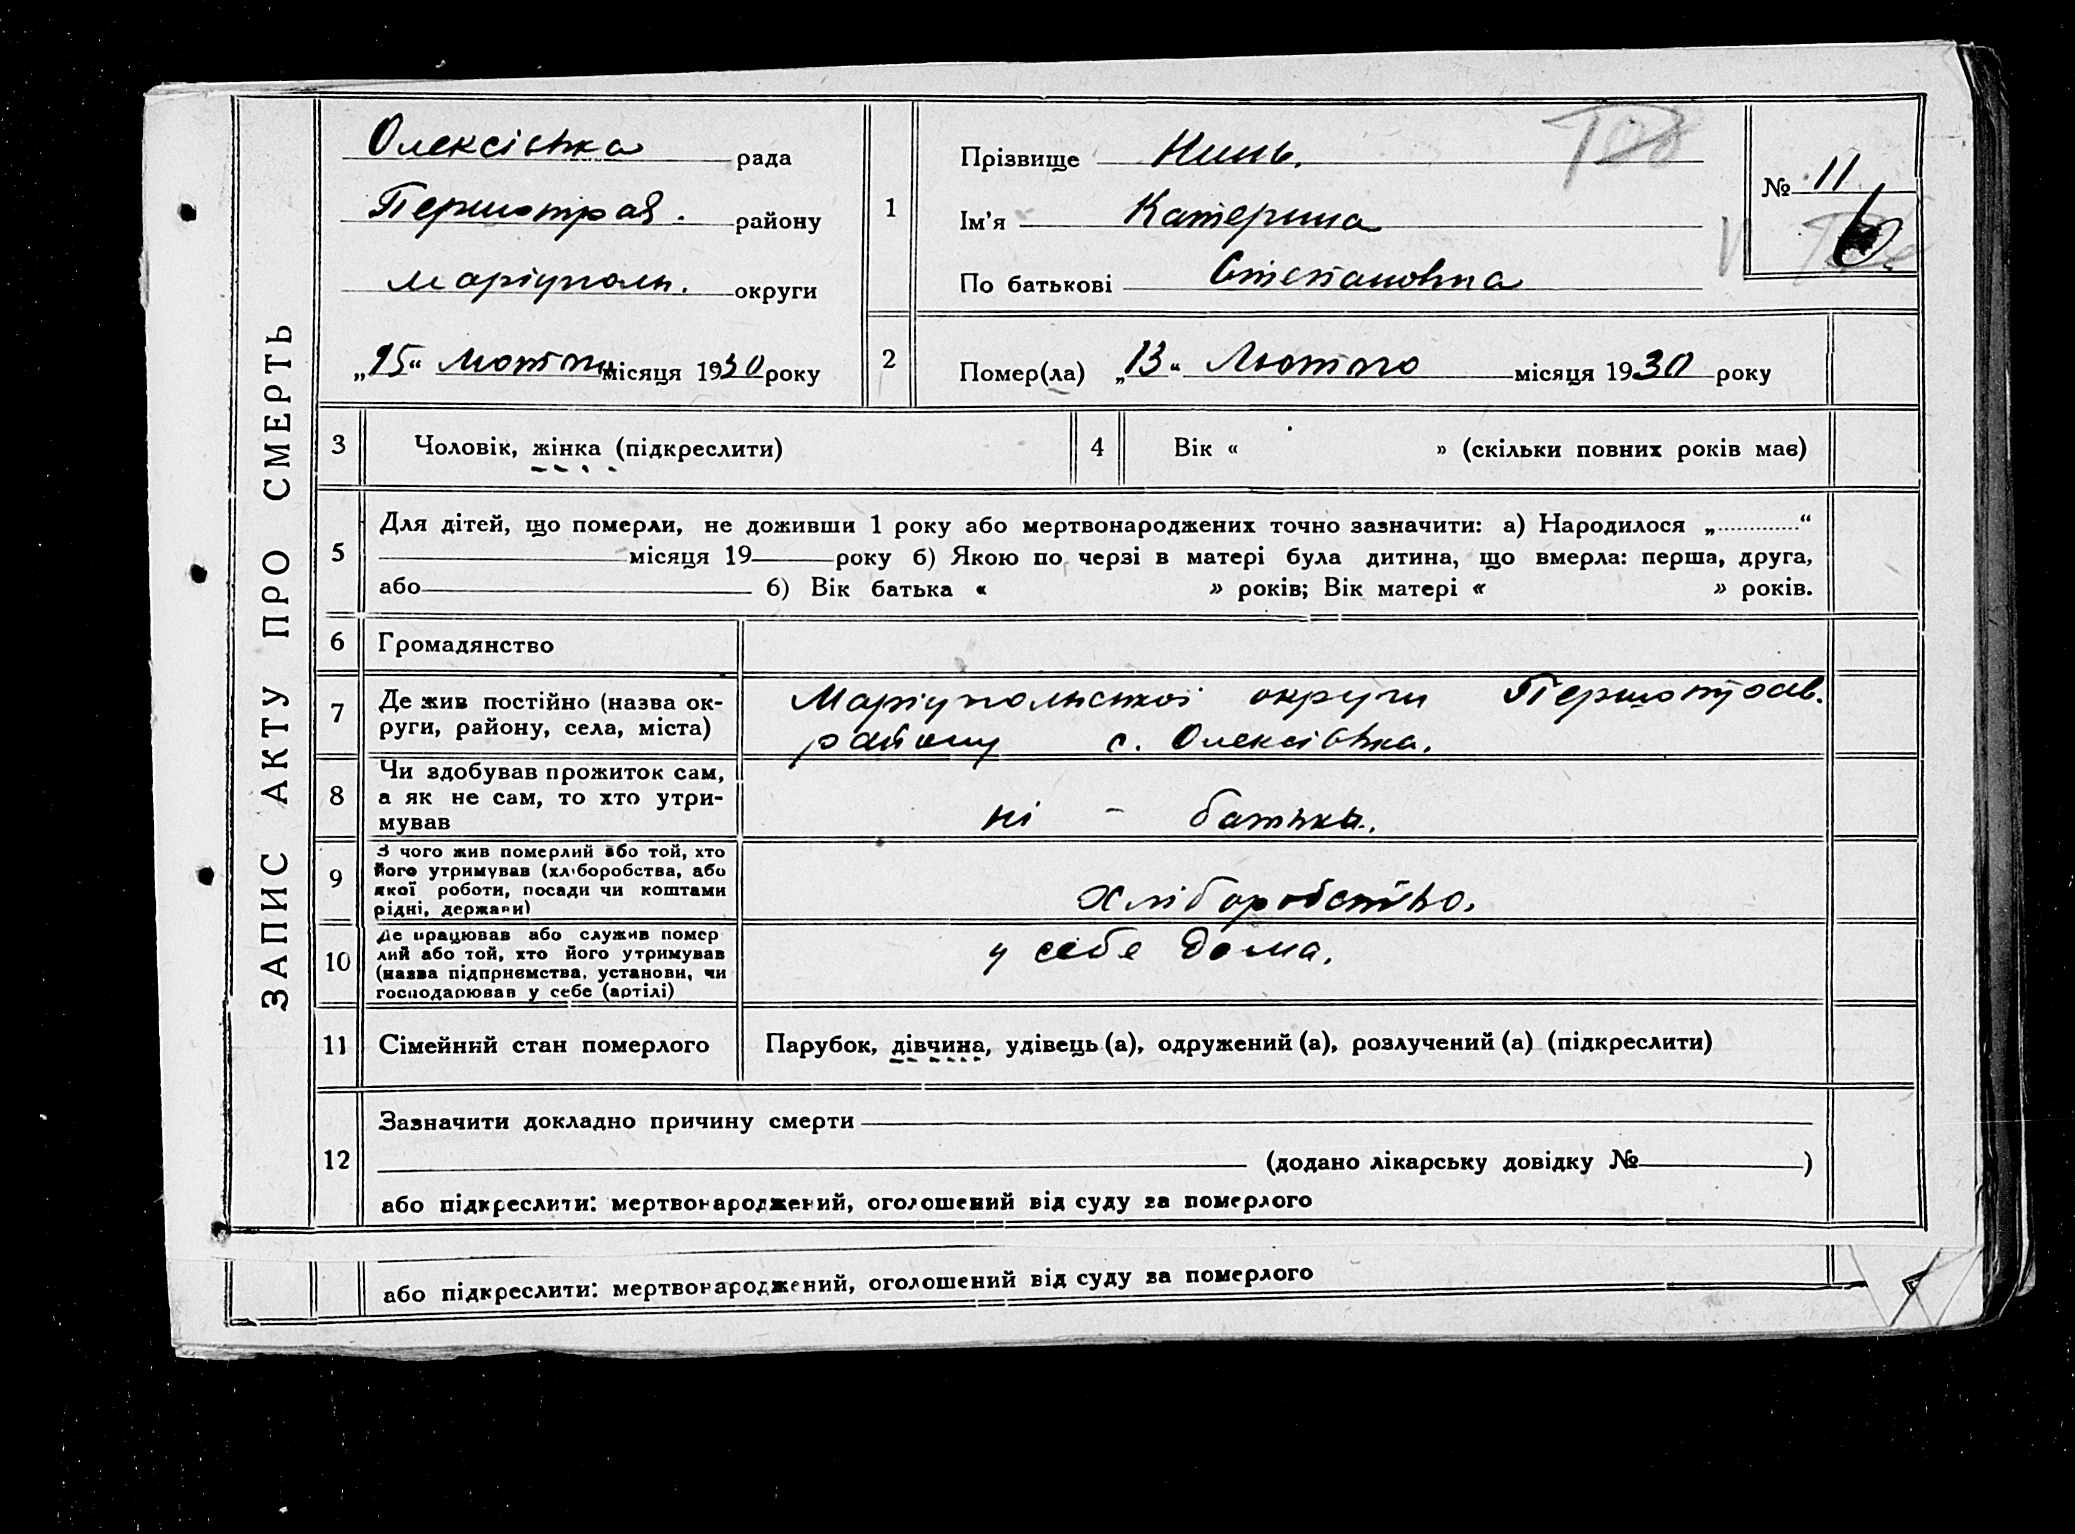 ЗАПИС АКТУ ПРО СМЕРТЬ
Олексієвка рада
Першотрав. району
Маріуполь. округи
„15“ Лютого місяця 1930 року
1
Прізвище Нинь.
Ім'я Катерина
По батькові Степановна
№ 11
2
Помер(ла) „13“ Лютого місяця 1930 року
3 Чоловік, жінка (підкреслити)
4 Вік « » (скільки повних років має)
5
Для дітей, що померли, не доживши 1 року або мертвонароджених точно зазначити: а) Народилося „ “
місяця 19 року б) Якою по черзі в матері була дитина, що вмерла: перша, друга,
або б) Вік батька « » років; Вік матері « » років.
6 Громадянство
7
Де жив постійно (назва ок-
руги, району, села, міста)
Маріупольської округи Першотрав.
району с. Олексієвка.
8
Чи здобував прожиток сам,
а як не сам, то хто утри-
мував
ні - батько.
9
З чого жив померлий або той, хто
його утримував (хліборобства, або
якої роботи, посади чи коштами
рідні, держави)
Хліборобство.
10
Де працював або служив помер
лий або той, хто його утримував
(назва підприємства, установи, чи
господарював у себе (артілі)
у себе дома.
11 Сімейний стан померлого
Парубок, дівчина, удівець (а), одружений (а), розлучений (а) (підкреслити)
12
Зазначити докладно причину смерти
(додано лікарську довідку № )
або підкреслити: мертвонароджений, оголошений від суду за померлого
або підкреслити: мертвонароджений, оголошений від суду за померлого